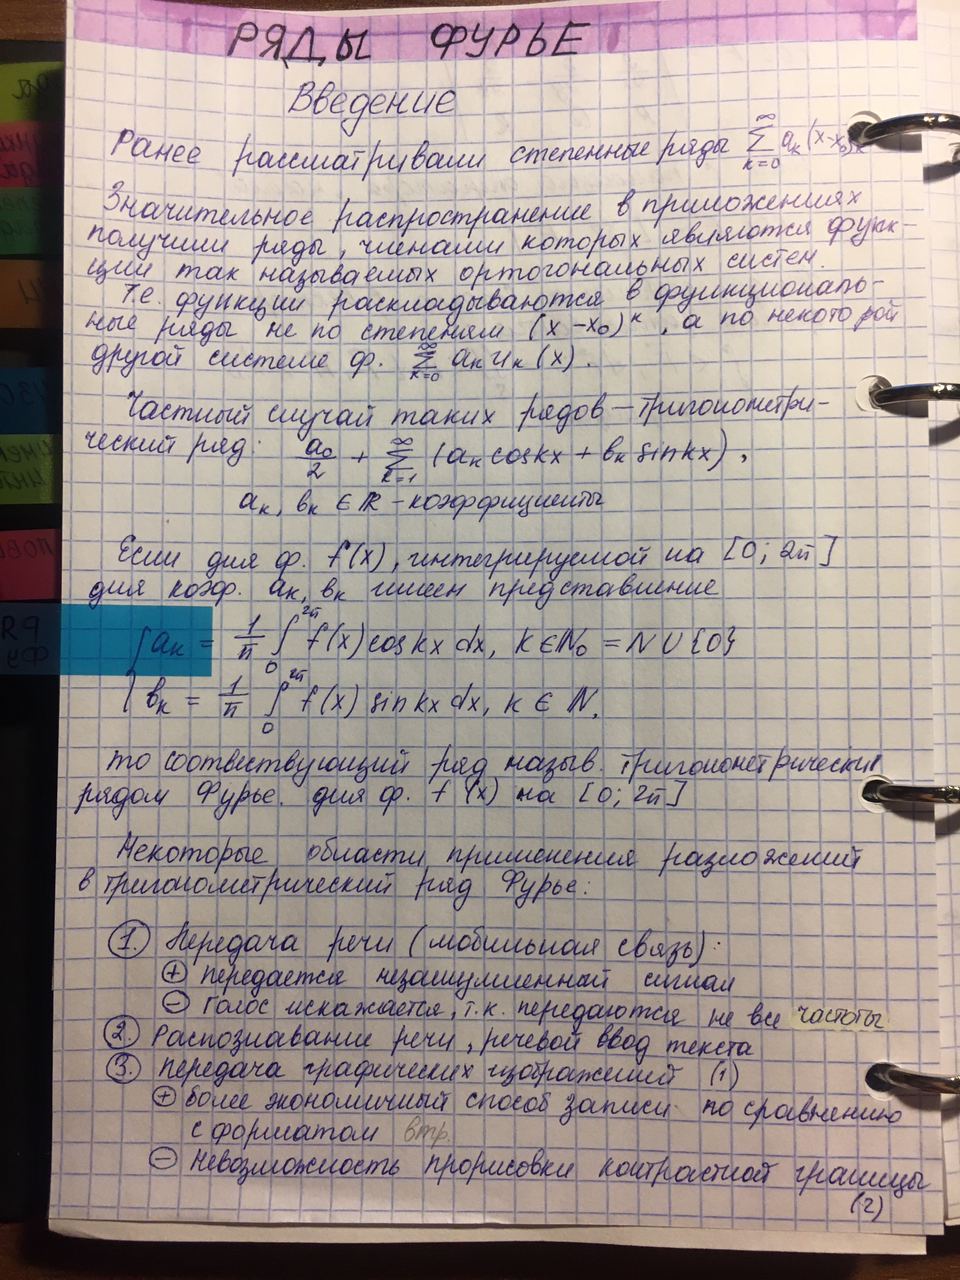 РЯДЫ ФУРЬЕ
Введение
Ранее рассматривали степенные ряды ∞∑k=0 aₖ(x-x₀)ᵏ
Значительное распространение в приложениях
получили ряды, членами которых являются функ-
ции так называемых ортогональных систем.
Т.е. функции раскладываются в функциональ-
ные ряды не по степеням (x-x₀)ᵏ, а по некоторой
другой системе ф. ∞∑k=0 aₖuₖ(x).
Частный случай таких рядов — тригонометри-
ческий ряд: a₀/2 + ∞∑k=1 (aₖ cos kx + bₖ sin kx),
aₖ, bₖ ∈ R - коэффициенты
Если для ф. f(x), интегрируемой на [0; 2π]
для коэф. aₖ, bₖ имеем представление
{ aₖ = 1/π ∫₀^2π f(x) cos kx dx, k ∈ N₀ = N ∪ {0}
bₖ = 1/π ∫₀^2π f(x) sin kx dx, k ∈ N,
то соотвствующий ряд назыв. тригонометрическим
рядом Фурье. для ф. f(x) на [0; 2π]
Некоторые области применения разложений
в тригонометрический ряд Фурье:
1. Передача речи (мобильная связь):
+ передается незашумленный сигнал
− Голос искажается, т.к. передаются не все частоты
2. Распознавание речи, речевой ввод текста
3. Передача графических изображений (1)
+ более экономичный способ записи по сравнению
с форматом bmp.
− Невозможность прорисовки контрастной границы
(2)